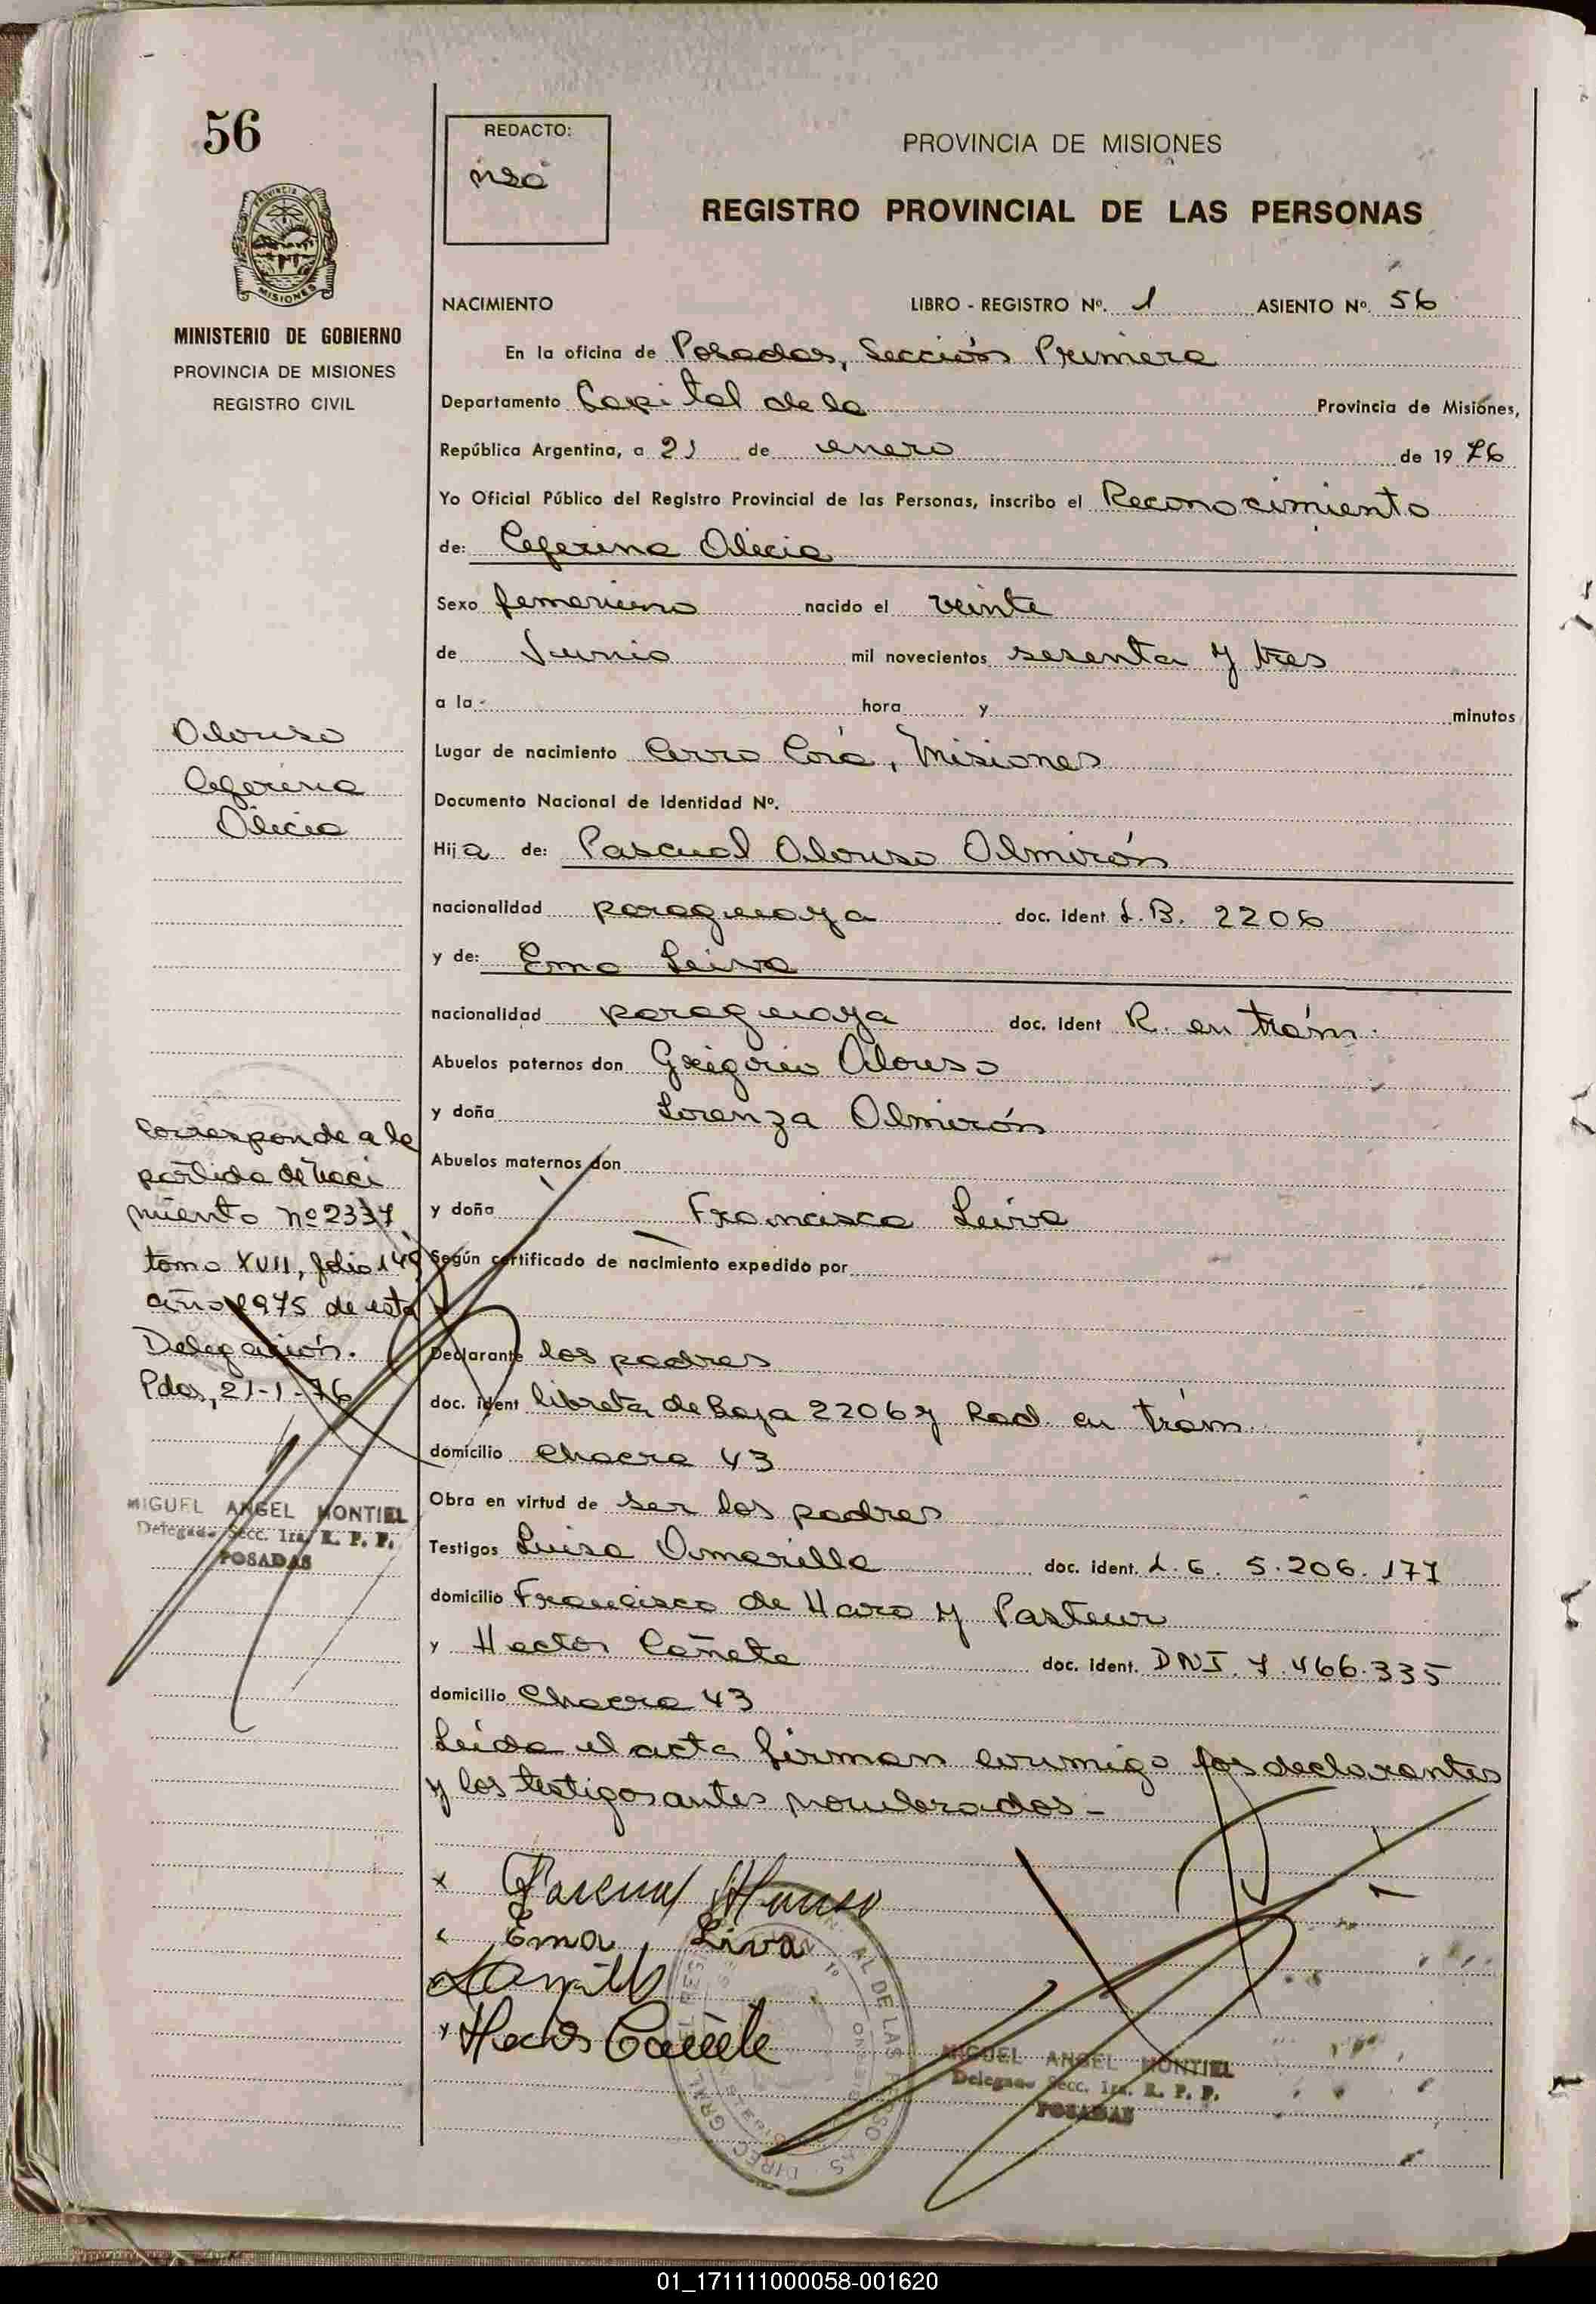 56
REDACTO:
PROVINCIA DE MISIONES
REGISTRO PROVINCIAL DE LAS PERSONAS
MINISTERIO DE GOBIERNO
PROVINCIA DE MISIONES
REGISTRO CIVIL
NACIMIENTO LIBRO - REGISTRO Nº. 1 ASIENTO Nº. 56
En la oficina de Posadas, Sección Primera
Departamento Capital de la Provincia de Misiones,
República Argentina, a 21 de enero de 1976
Yo Oficial Público del Registro Provincial de las Personas, inscribo el Reconocimiento
de: Ceferina Alicia
Sexo femenino nacido el veinte
de Junio mil novecientos sesenta y tres
a la hora y minutos
Lugar de nacimiento Cerro Corá, Misiones
Documento Nacional de Identidad Nº.
Hija de: Pascual Alonso Almirón
nacionalidad paraguaya doc. Ident. L.B. 2206
y de: Ema Leiva
nacionalidad paraguaya doc. Ident R. en trám.
Abuelos paternos don Gregorio Alonso
y doña Lorenza Almirón
Abuelos maternos don
y doña Francisca Leiva
Según certificado de nacimiento expedido por
Declarante los padres
doc. ident libreta de Baja 2206 y Rad. en trám.
domicilio Chacra 43
Obra en virtud de ser los padres
Testigos Luisa Amarilla doc. ident. L.C. 5.206.177
domicilio Francisco de Haro y Pasteur
y Hector Cañete doc. ident. DNI. 7.466.335
domicilio Chacra 43
Leída el acta firman conmigo los declarantes
y los testigos antes nombrados -
Alonso
Ceferina
Alicia
Corresponde a la
partida de naci
miento nº 2337
tomo XVII, folio 149
año 1975 de esta
Delegación.
Pdas, 21-1-76
MIGUEL ANGEL MONTIEL
Delegado Secc. 1ra. R. P. P.
POSADAS
x Pascual Alonso
Ema Liva
Hector Cañete
MIGUEL ANGEL MONTIEL
Delegado Secc. 1ra. R. P. P.
POSADAS
01_171111000058-001620